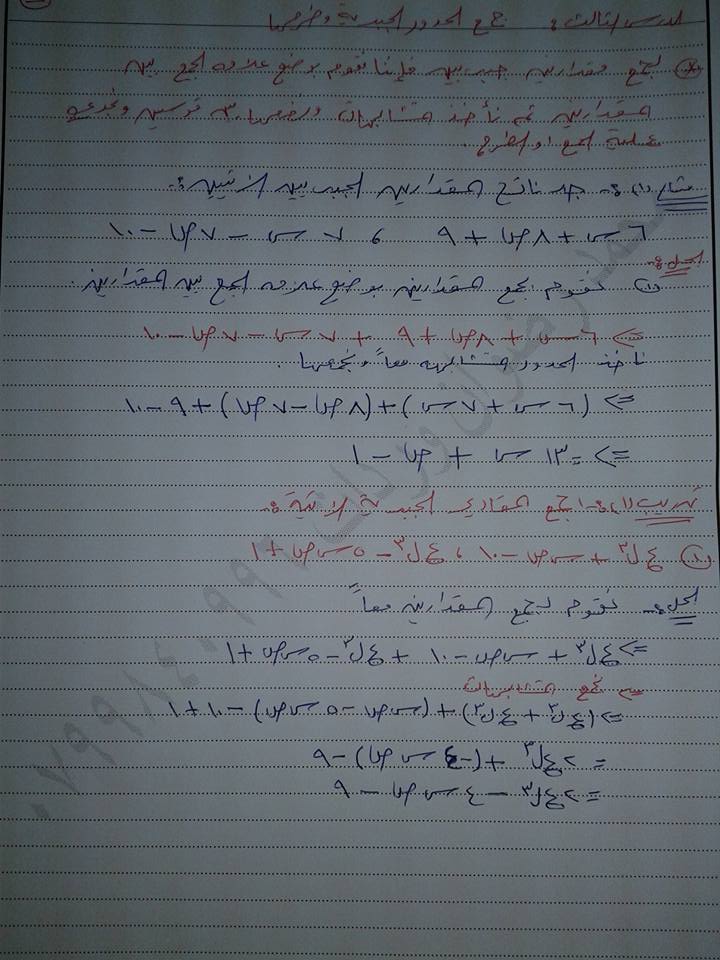 الدرس الثالث : جمع الحدود الجبرية وطرحها
* لجمع مقدارين جبريين فإننا نقوم بوضع علامة الجمع بين
المقدارين ثم نأخذ المتشابهات ونضعها بين قوسين ونجري
عملية الجمع أو الطرح.
مثال (١) :- جد ناتج المقدارين الجبريين الآتيين :-
٦س + ٨ص + ٩ ، ٧س - ٧ص - ١٠
الحل :-
(١) نقوم بجمع المقدارين بوضع علامة الجمع بين المقدارين.
<= ٦س + ٨ص + ٩ + ٧س - ٧ص - ١٠
نأخذ الحدود المتشابهة معاً ونجمعها.
<= (٦س + ٧س) + (٨ص - ٧ص) + ٩ - ١٠
<= = ١٣س + ص - ١
تدريب (١) :- اجمع المقادير الجبرية الآتية :-
(١) ع ل٣ + س ص - ١٠ ، ع ل٣ - ٥ س ص + ١
الحل :- نقوم بجمع المقدارين معاً
<= ع ل٣ + س ص - ١٠ + ع ل٣ - ٥ س ص + ١
نجمع المتشابهات
<= (ع ل٣ + ع ل٣) + (س ص - ٥ س ص) - ١٠ + ١
= ٢ ع ل٣ + (-٤ س ص) - ٩
= ٢ ع ل٣ - ٤ س ص - ٩